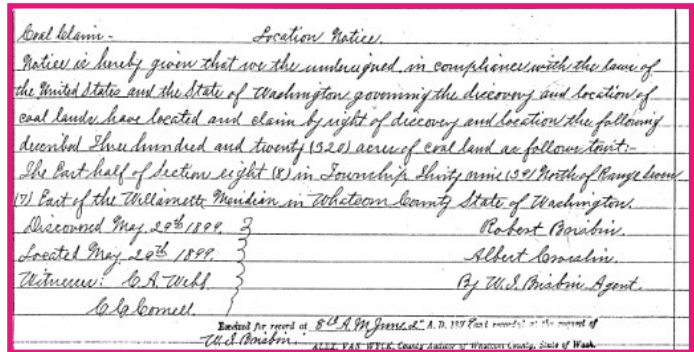 Coal Claim - Location Notice.
Notice is hereby given that we the undersigned, in compliance with the laws of
the United States and the State of Washington governing the discovery and location of
coal lands have located and claim by right of discovery and location the following
described Three hundred and twenty (320) acres of coal land as follows towit:-
The East half of Section eight (8) in Township Thirty nine (39) North of Range Seven
(7) East of the Willamette Meridian in Whatcom County State of Washington.
Discovered May 29th 1899. Robert Brisbin.
Located May 29th 1899. Albert
Witnesses: C. A. Webb By W. S. Brisbin Agent.
C. C. Cornell.
Received for record at 8th A. M. June 2" A. D. 1899 and recorded at the request of
W. S. Brisbin. ALEX. VAN WYCK, County Auditor of Whatcom County, State of Wash.